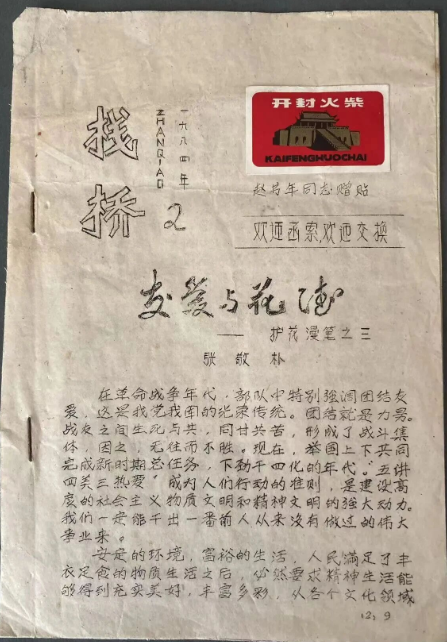 栈桥
ZHANQIAO
一九八四年
2
开封火柴
KAIFENGHUOCHAI
赵易年同志赠贴
欢迎函索,欢迎交换
友爱与花德
——护花漫笔之三
张敬朴
在革命战争年代,部队中特别强调团结友
爱,这是我党我国的光荣传统。团结就是力量。
战友之间生死与共,同甘共苦,形成了战斗集
体,因之,无往而不胜。现在,举国上下共同
完成新时期总任务,下动干四化的年代,“五讲
四美三热爱”成为人们行动的准则,是建设高
度的社会主义物质文明和精神文明的强大动力。
我们一定能干出一番前人从来没有做过的伟大
事业来。
安定的环境,富裕的生活,人民满足了丰
衣足食的物质生活之后,必然要求精神生活能
够得到充实美好,丰富多彩,从各个文化领域
12,9